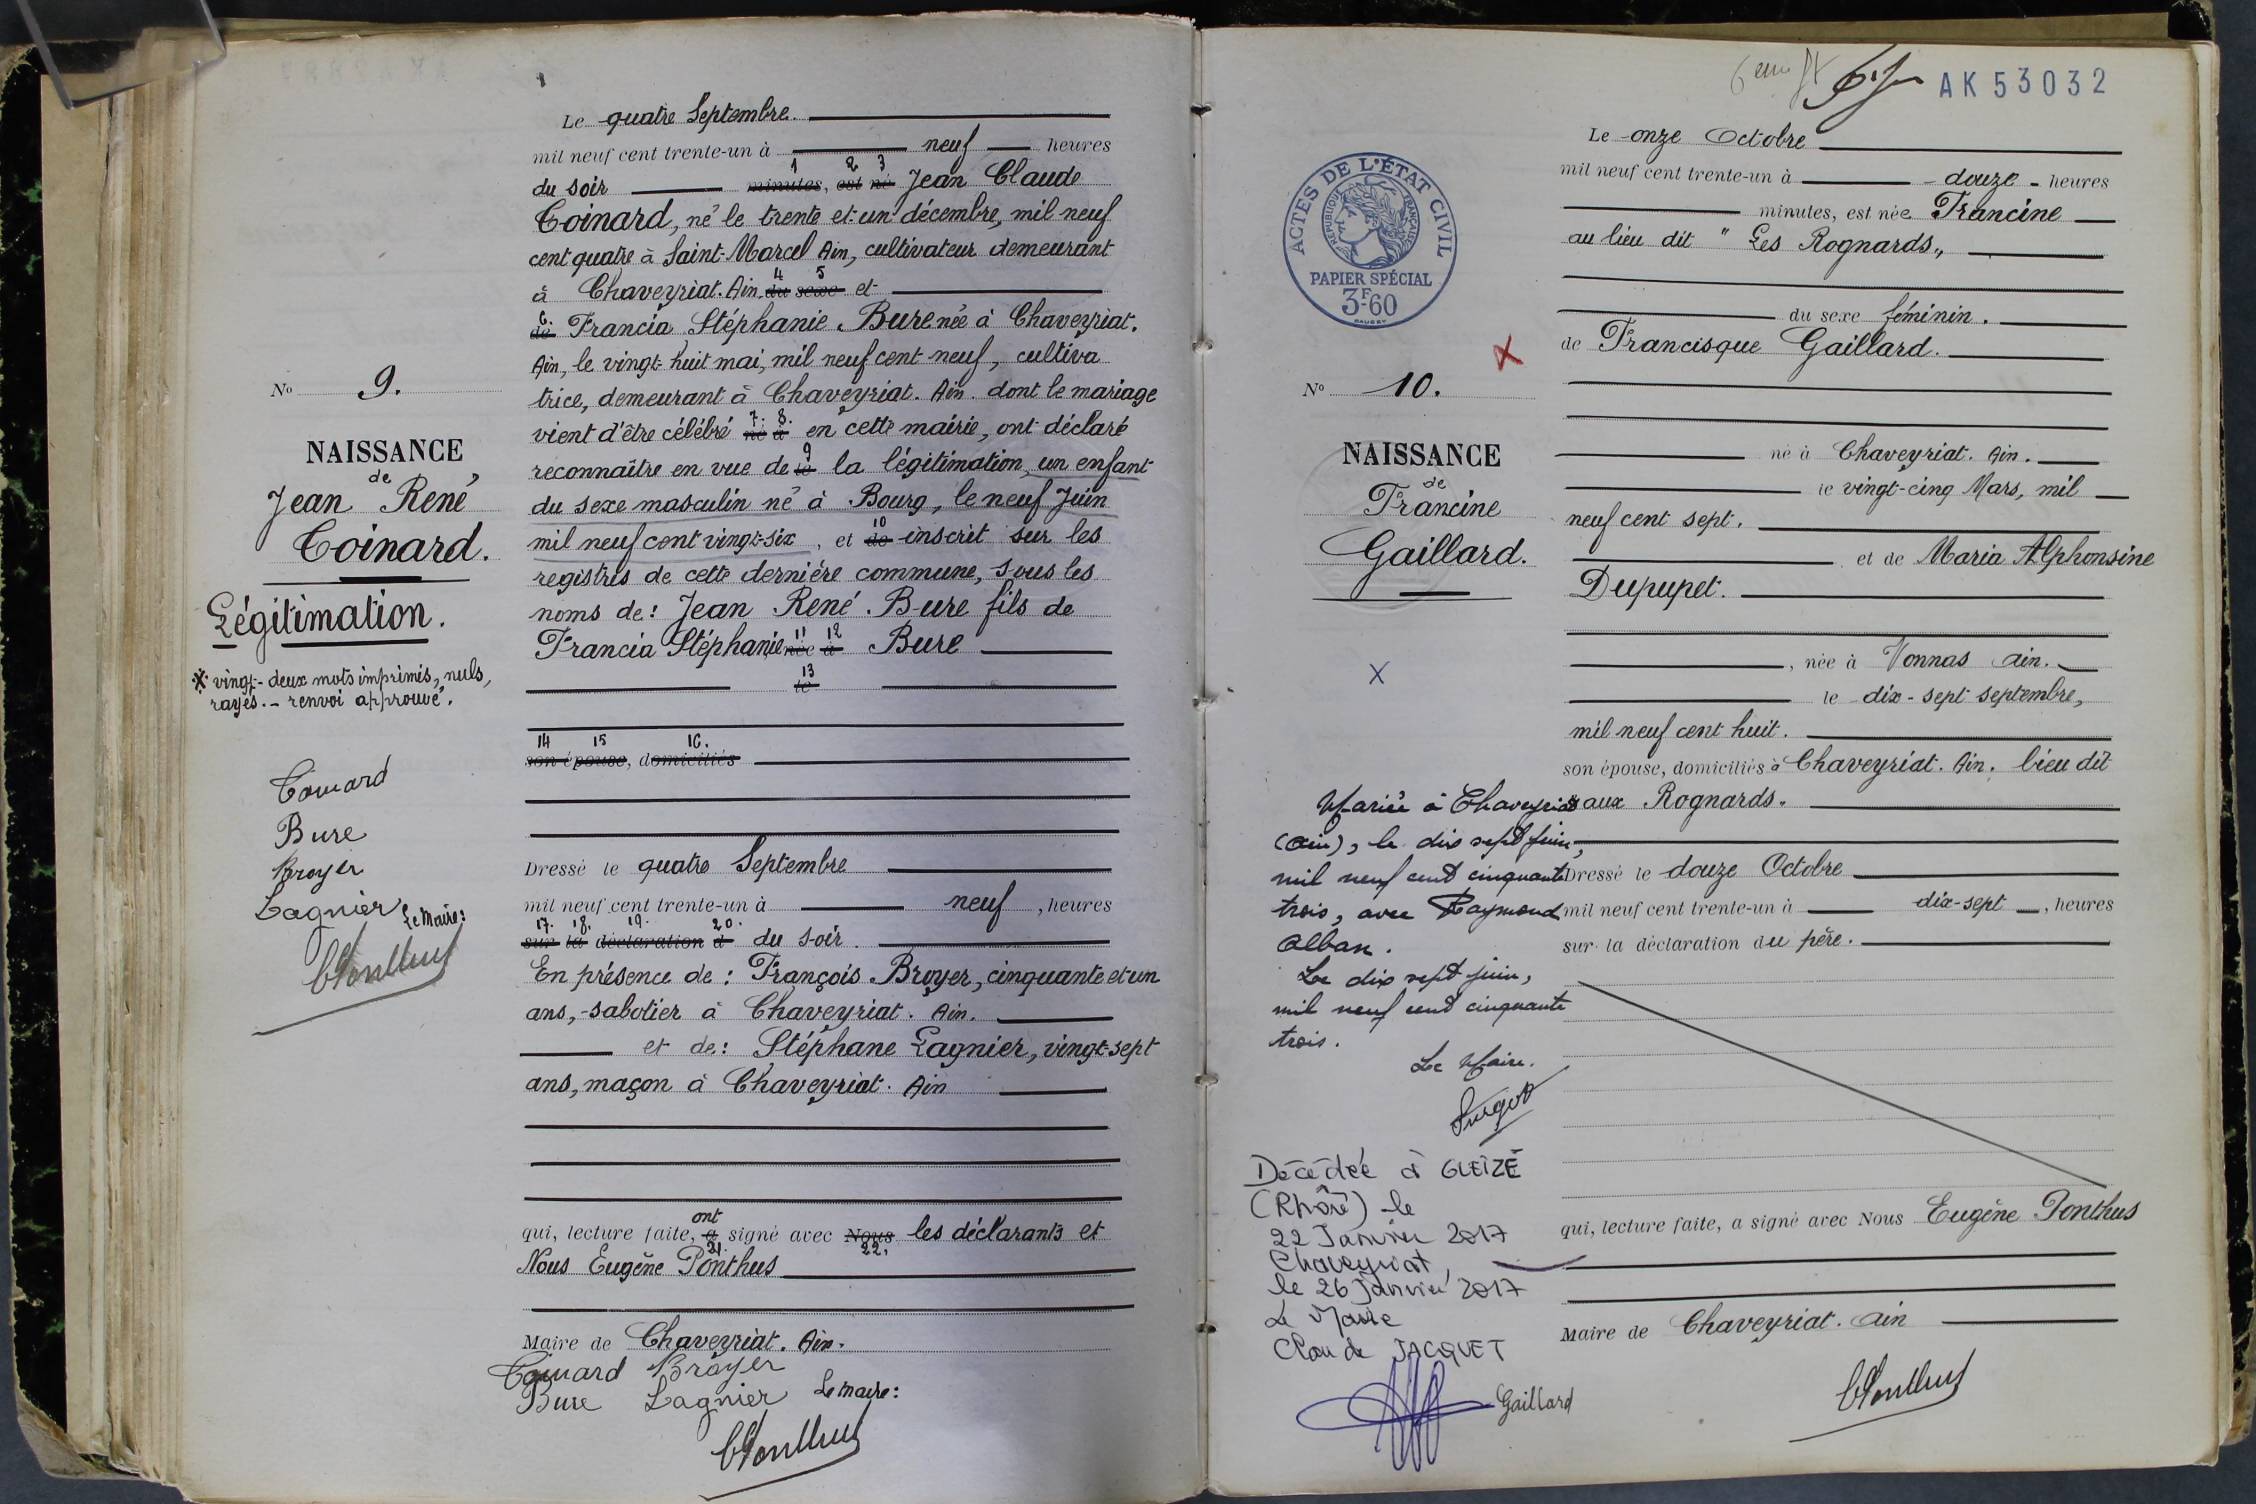 Le quatre Septembre.
mil neuf cent trente-un à neuf heures
1 2 3
du soir minutes, est né Jean Claude
Coinard, né le trente et un décembre, mil neuf
cent quatre à Saint-Marcel Ain, cultivateur demeurant
4 5
à Chaveyriat. Ain. du sexe et
6.
de Francia Stéphanie Bure née à Chaveyriat.
Ain, le vingt-huit mai, mil neuf cent neuf, cultiva
trice, demeurant à Chaveyriat. Ain. dont le mariage
7. 8.
vient d'être célébré né à en cette mairie, ont déclaré
9
reconnaître en vue de le la légitimation, un enfant
du sexe masculin né à Bourg, le neuf Juin
10
mil neuf cent vingt-six, et de inscrit sur les
registres de cette dernière commune, sous les
noms de: Jean René Bure fils de
11 12
Francia Stéphanie née à Bure
13
le
14 15 16.
son épouse, domiciliés
Dressé le quatre Septembre
mil neuf cent trente-un à neuf, heures
17. 18. 19. 20.
sur la déclaration d du soir.
En présence de: François Broyer, cinquante et un
ans, sabotier à Chaveyriat. Ain.
et de: Stéphane Lagnier, vingt-sept
ans, maçon à Chaveyriat. Ain
ont
qui, lecture faite, a signé avec Nous les déclarants et
21. 22.
Nous Eugène Ponthus
Maire de Chaveyriat. Ain.
Coinard Broyer
Bure Lagnier Le maire:
No 9.
NAISSANCE
de
Jean René
Coinard.
Légitimation.
* vingt-deux mots imprimés, nuls,
rayés. - renvoi approuvé.
Coinard
Bure
Broyer
Lagnier Le Maire:
6eme AK 53032
Le onze Octobre
mil neuf cent trente-un à douze heures
minutes, est née Francine
au lieu dit " Les Rognards „
du sexe féminin.
de Francisque Gaillard.
né à Chaveyriat. Ain.
le vingt-cinq Mars, mil
neuf cent sept.
et de Maria Alphonsine
Dupupet.
, née à Vonnas ain.
le dix-sept septembre,
mil neuf cent huit.
son épouse, domiciliés à Chaveyriat. Ain. lieu dit
aux Rognards.
Dressé le douze Octobre
mil neuf cent trente-un à dix-sept, heures
sur la déclaration du père.
qui, lecture faite, a signé avec Nous Eugène Ponthus
Maire de Chaveyriat. ain
ACTES DE L'ÉTAT CIVIL
RÉPUBLIQUE FRANÇAISE
PAPIER SPÉCIAL
3F-60
X
No 10.
NAISSANCE
de
Francine
Gaillard.
X
Mariée à Chaveyriat
(ain), le dix sept juin,
mil neuf cent cinquante
trois, avec Raymond
Alban.
Le dix sept juin,
mil neuf cent cinquante
trois.
Le Maire.
Décédée à GLEIZÉ
(Rhône) le
22 Janvier 2017
Chaveyriat,
le 26 Janvier 2017
Le Maire
Claude JACQUET
Gaillard